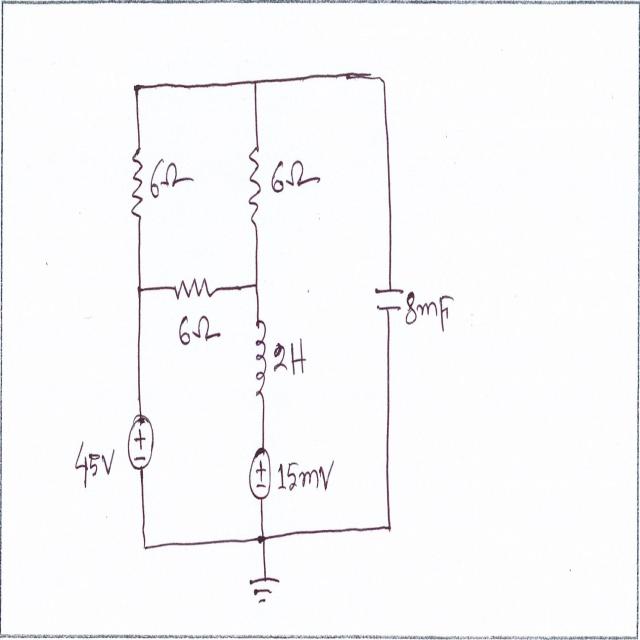 6Ω
6Ω
6Ω
8mF
2H
45V
15mV